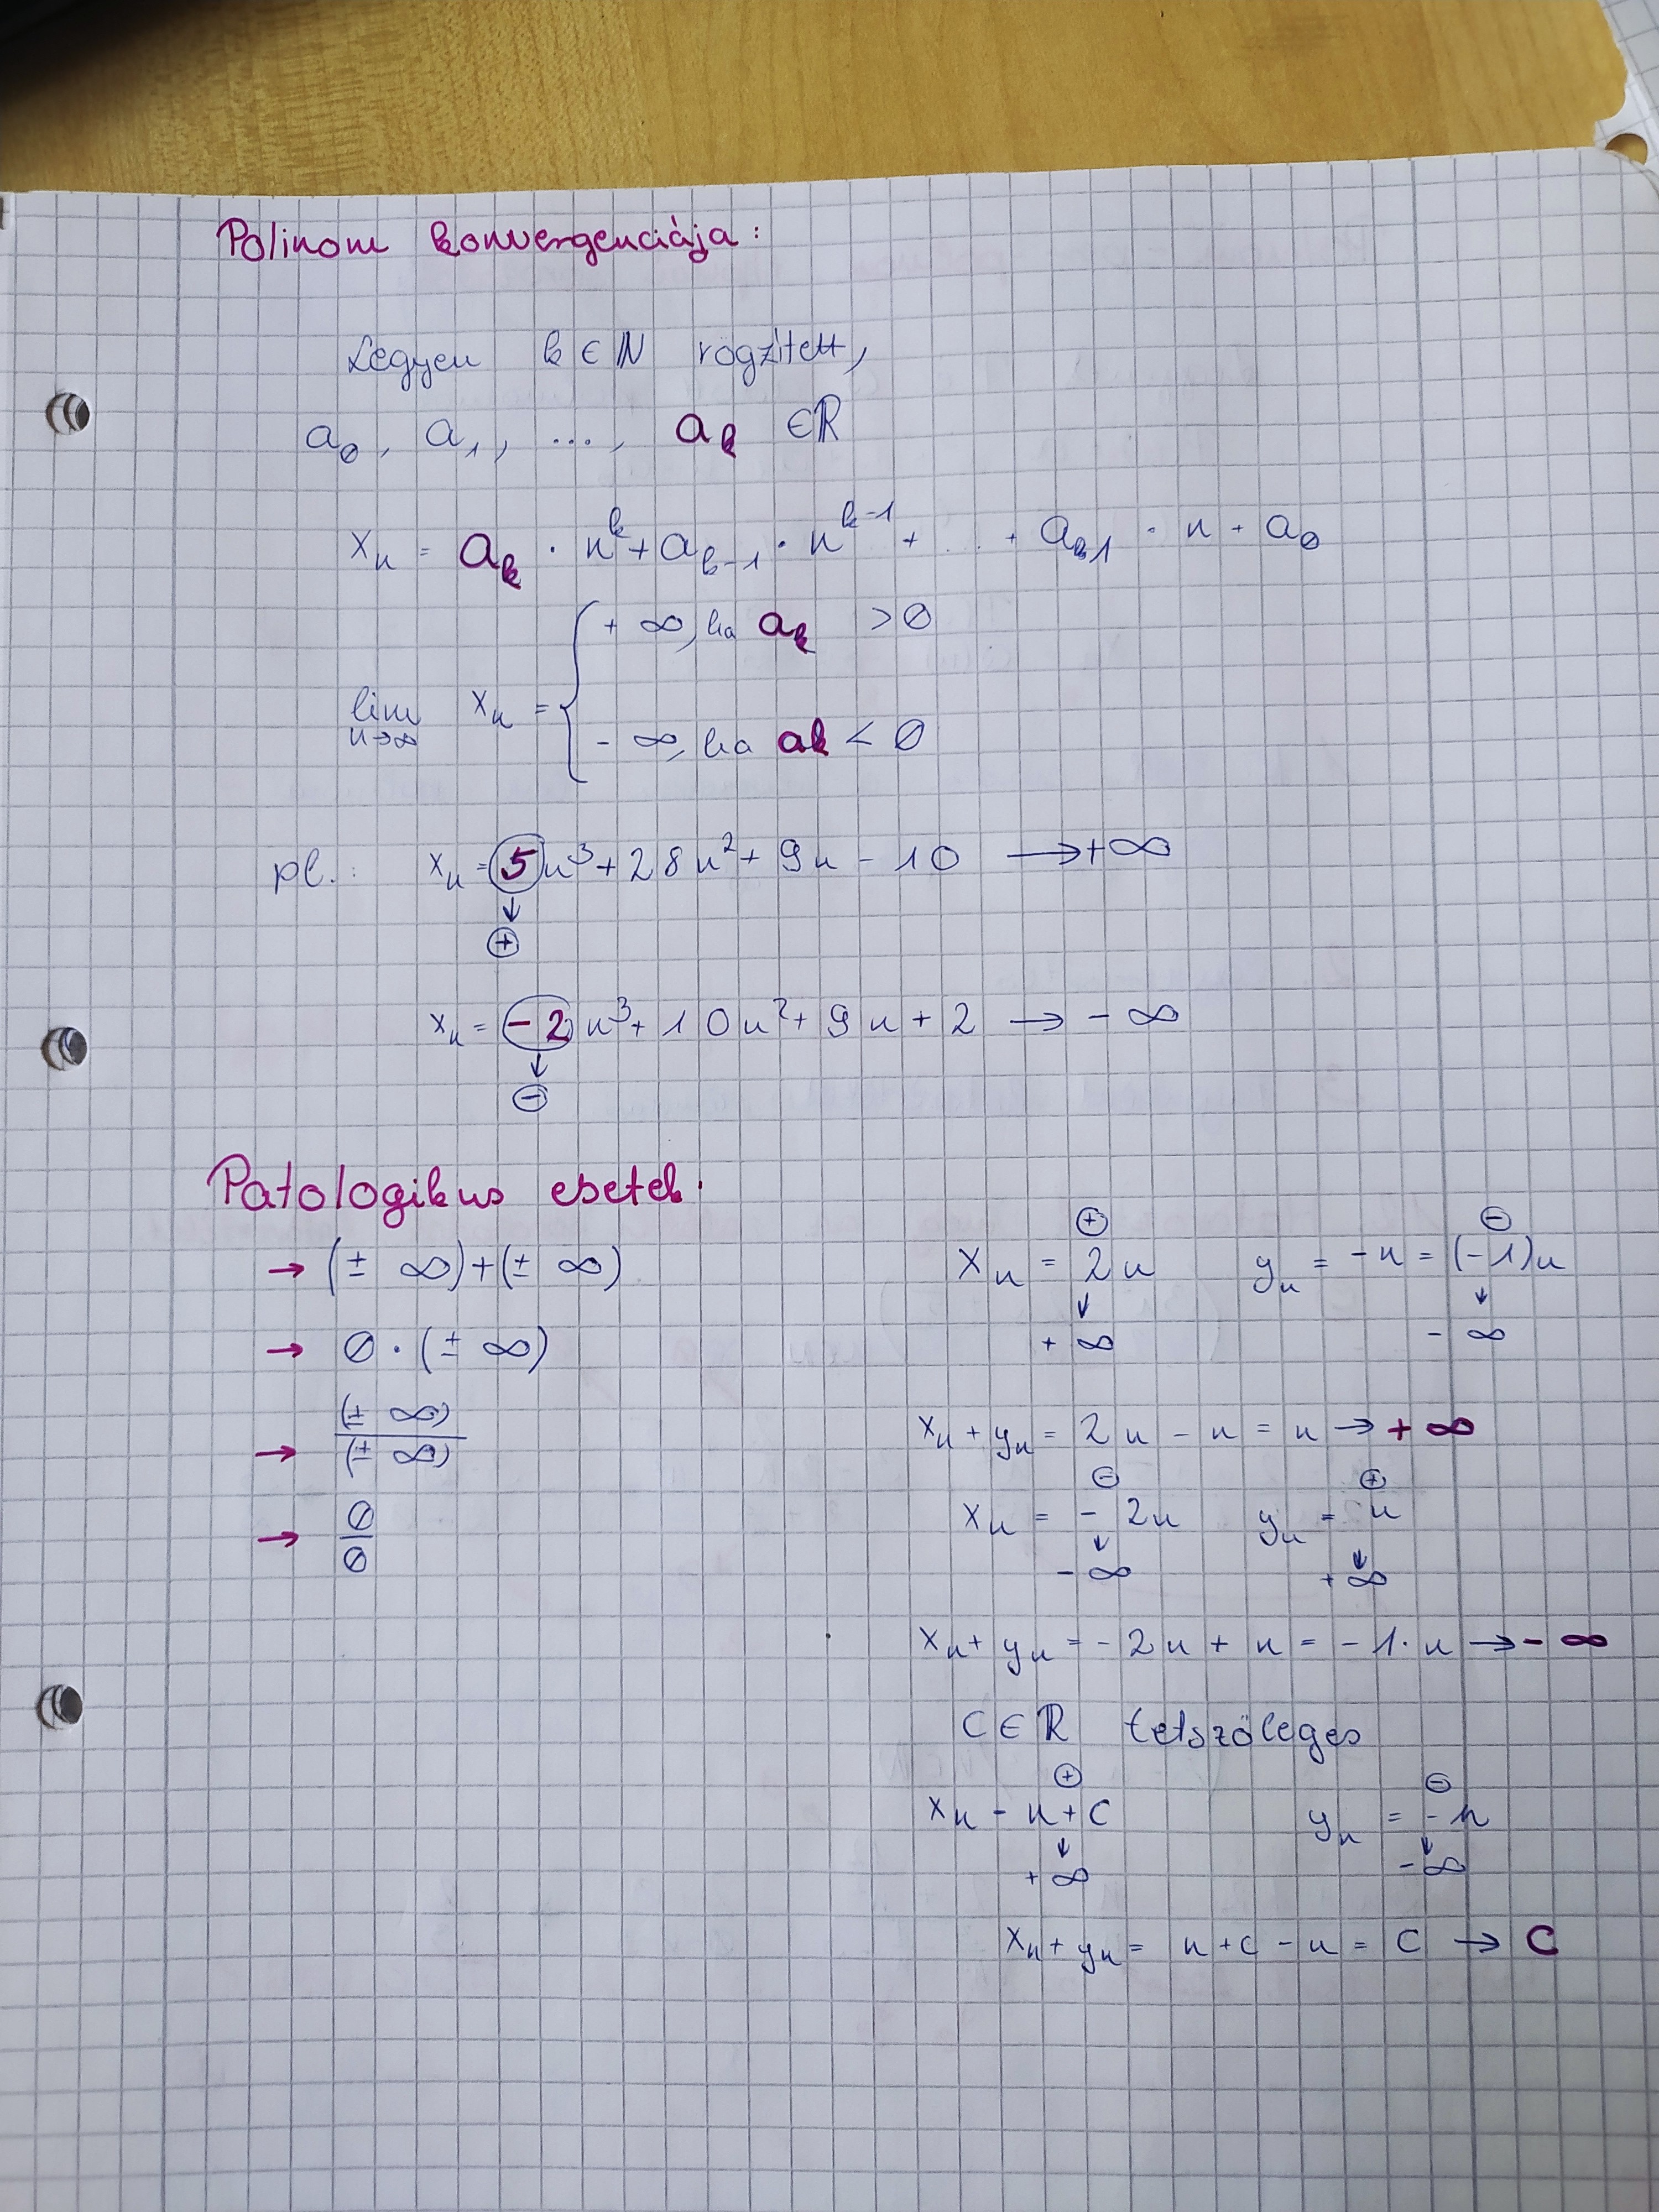 Polinom konvergenciája:
Legyen k ∈ ℕ rögzített,
a₀, a₁, ..., aₖ ∈ ℝ
xₙ = aₖ · nᵏ + aₖ₋₁ · nᵏ⁻¹ + ... + a₁ · n + a₀
+ ∞, ha aₖ > 0
lim xₙ =
n→∞
- ∞, ha ak < 0
pl.: xₙ = 5n³ + 28n² + 9n - 10 → +∞
↓
⊕
xₙ = -2n³ + 10n² + 9n + 2 → - ∞
↓
⊖
Patologikus esetek:
→ (± ∞) + (± ∞)
→ 0 · (± ∞)
→ (± ∞)
(± ∞)
→ 0
0
⊕ ⊖
xₙ = 2n yₙ = -n = (-1)n
↓ ↓
+ ∞ - ∞
xₙ + yₙ = 2n - n = n → + ∞
⊖ ⊕
xₙ = - 2n yₙ = n
↓ ↓
- ∞ + ∞
xₙ + yₙ = -2n + n = -1·n → - ∞
C ∈ ℝ tetszőleges
⊕ ⊖
xₙ - n + C yₙ = -n
↓ ↓
+ ∞ - ∞
xₙ + yₙ = n + c - n = C → C